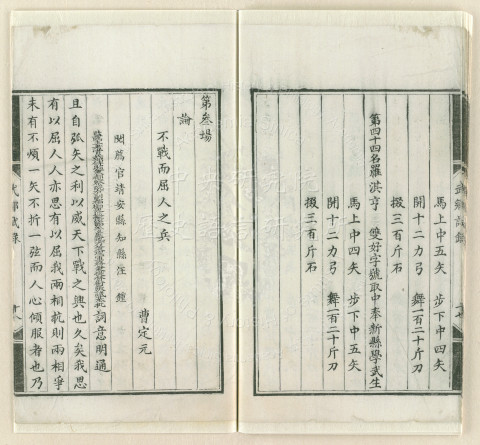 馬上中五矢　步下中四矢
開十二力弓　舞一百二十斤刀
掇三百斤石
第四十四名羅淇亨　雙好字號取中奉新縣學武生
馬上中四矢　步下中五矢
開十二力弓　舞一百二十斤刀
掇三百斤石
第叁場
論
不戰而屈人之兵
曹定元
閱薦官靖安縣知縣
詞意明通
且自弧矢之利以威天下戰之興也久矣我思
有以屈人人亦思有以屈我兩相抗則兩相爭
未有不煩一矢不折一弦而人心傾服者也乃